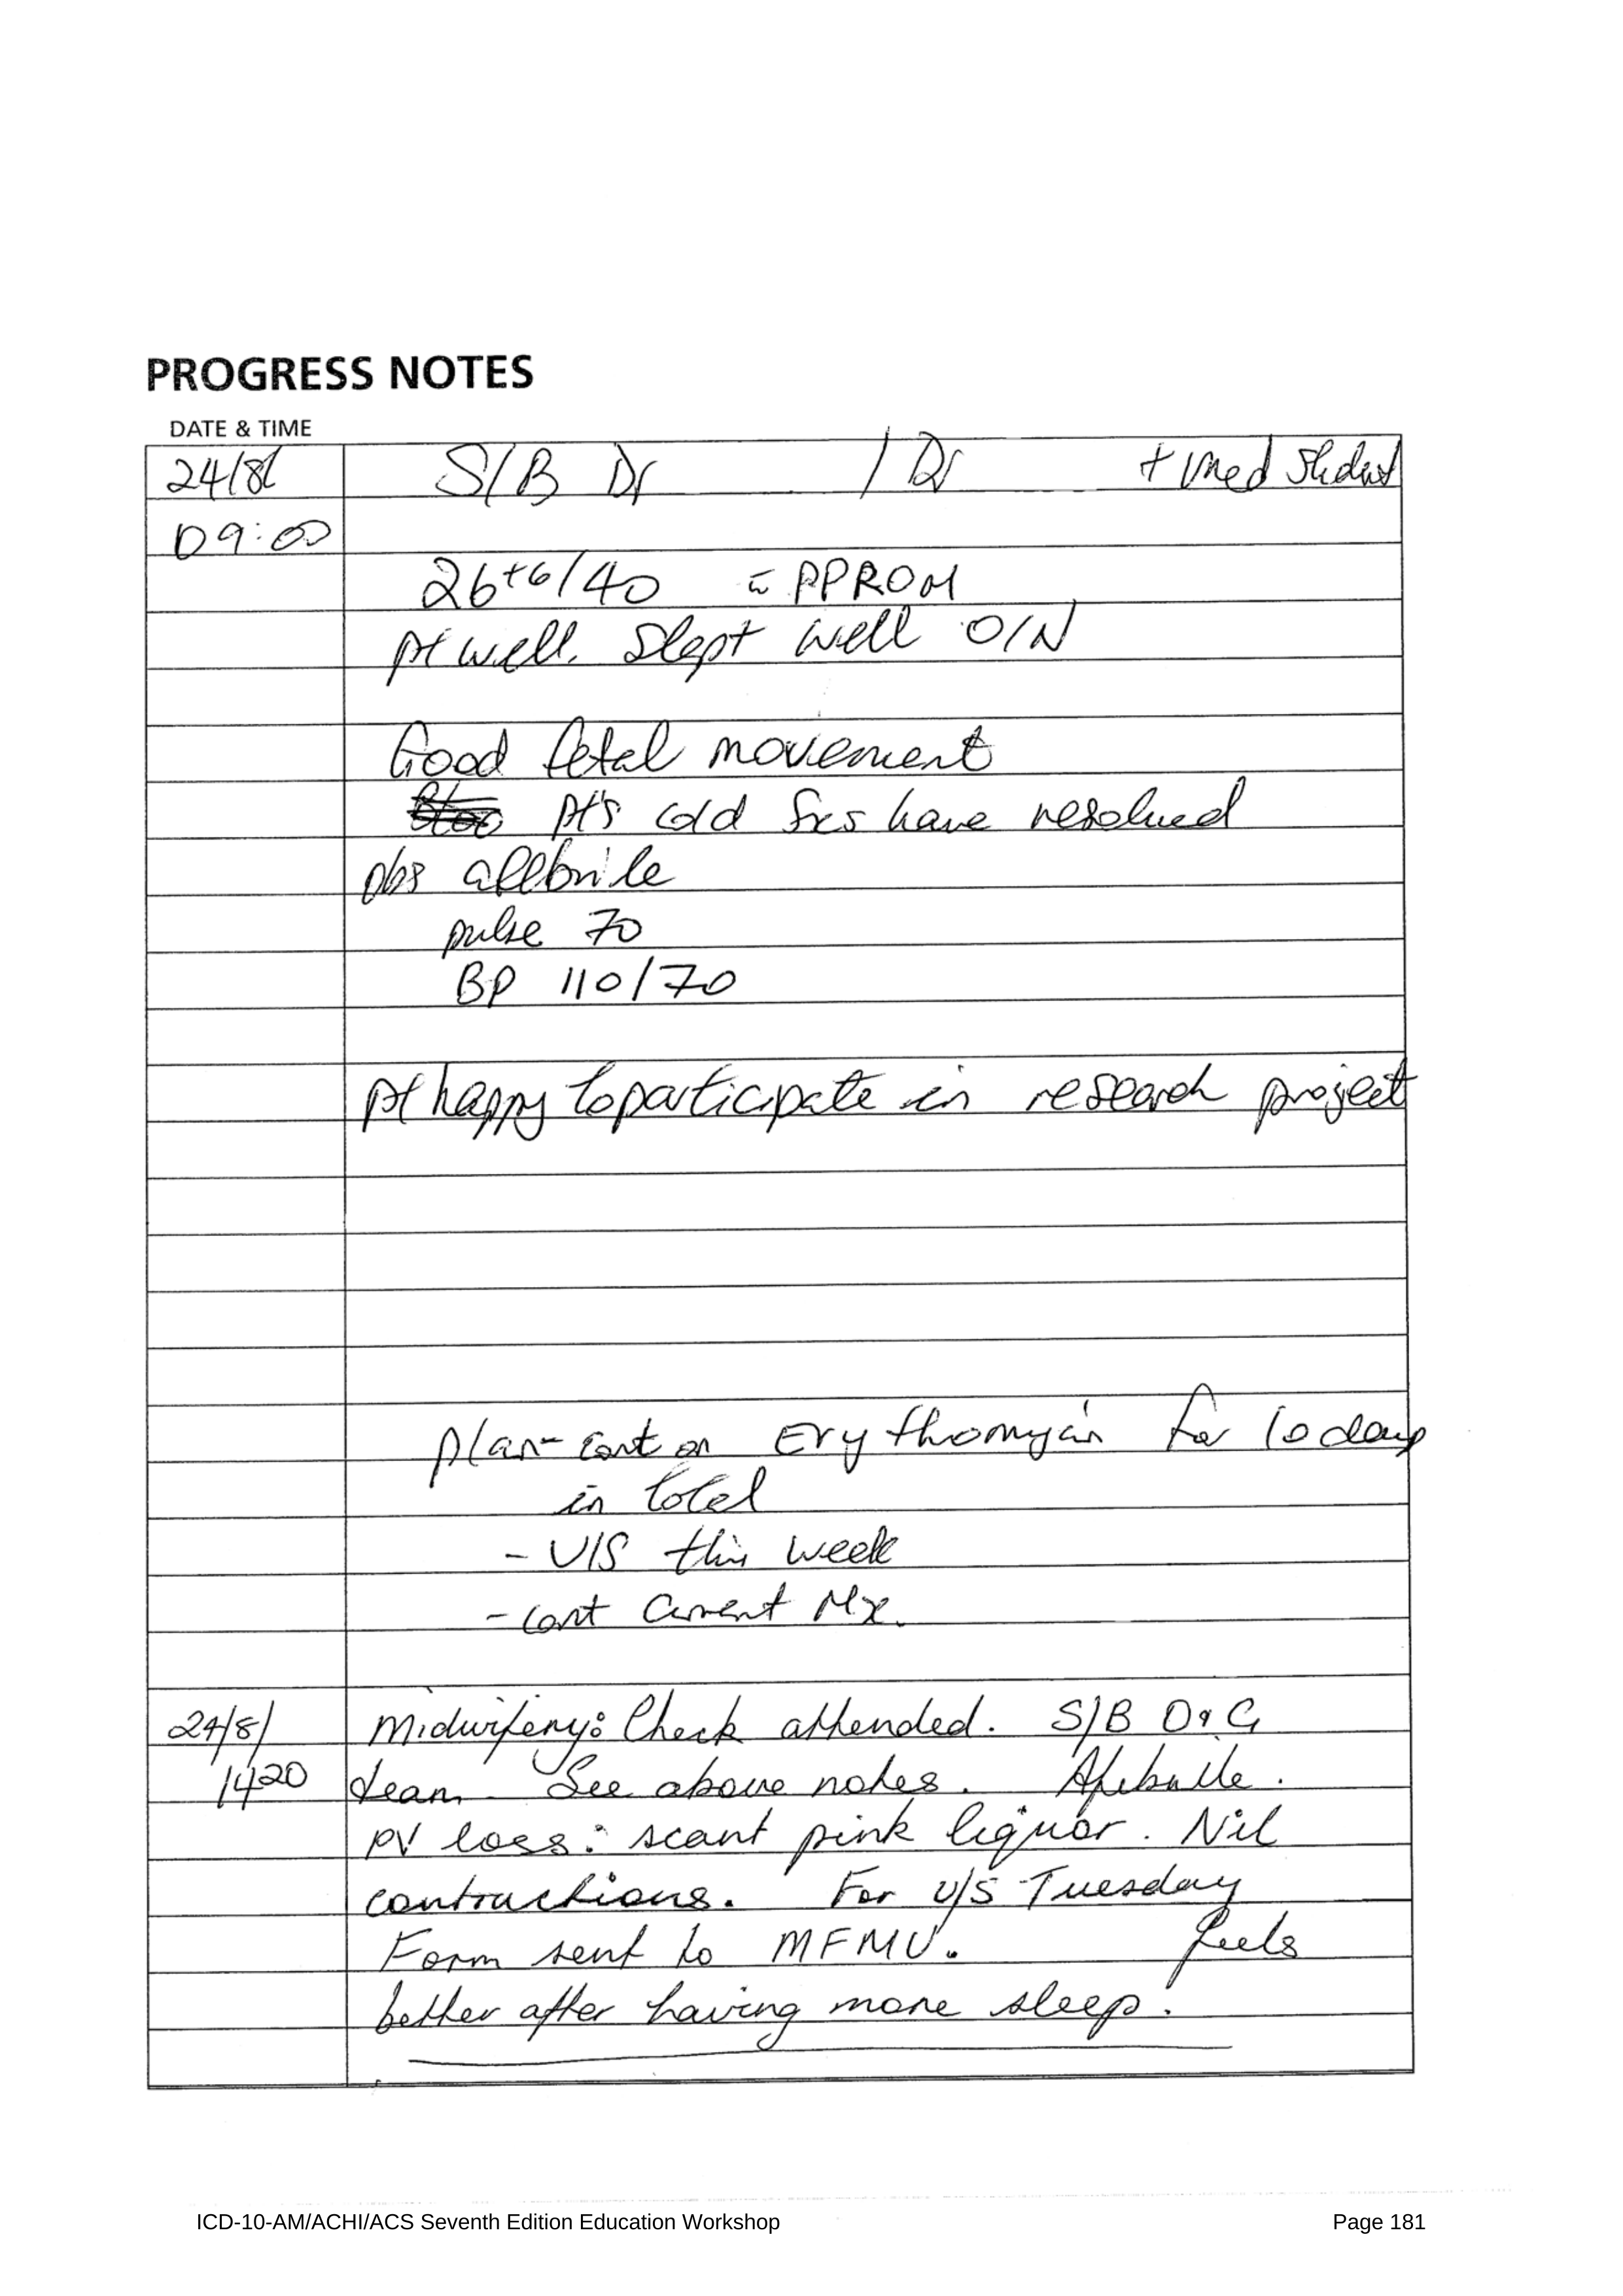 PROGRESS NOTES
DATE & TIME
24/8/ S/B Dr / Dr + 1 med student
09:00
26+6/40 c̄ PPROM
pt well. Slept well O/N
Good fetal movement
pt's cold Sxs have resolved
obs afebrile
pulse 70
BP 110/70
pt happy to participate in research project
plan - cont on Erythromycin for 10 days
in total
- U/S this week
- cont current Mx.
24/8/ Midwifery: Check attended. S/B O&G
1420 team. See above notes. Afebrile.
PV loss: scant pink liquor. Nil
contractions. For U/S Tuesday
Form sent to MFMU. feels
better after having more sleep.
ICD-10-AM/ACHI/ACS Seventh Edition Education Workshop Page 181